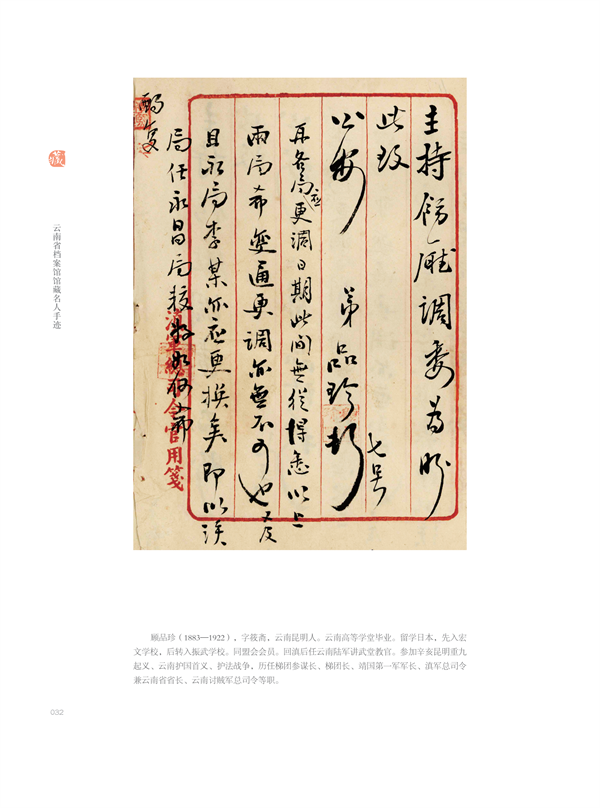 主持饬厅调委为盼
此致
公安 弟品珍折 七号
再各局应更调日期此间无从得悉以上
两局希变通更调亦无不可也又及
且永局李某亦应更换矣即以该
局任永昌局较好如何希
酌复
滇军总司令官用笺
云南省档案馆馆藏名人手迹
顾品珍（1883—1922），字筱斋，云南昆明人。云南高等学堂毕业。留学日本，先入宏
文学校，后转入振武学校。同盟会会员。回滇后任云南陆军讲武堂教官。参加辛亥昆明重九
起义、云南护国首义、护法战争，历任梯团参谋长、梯团长、靖国第一军军长、滇军总司令
兼云南省省长、云南讨贼军总司令等职。
032